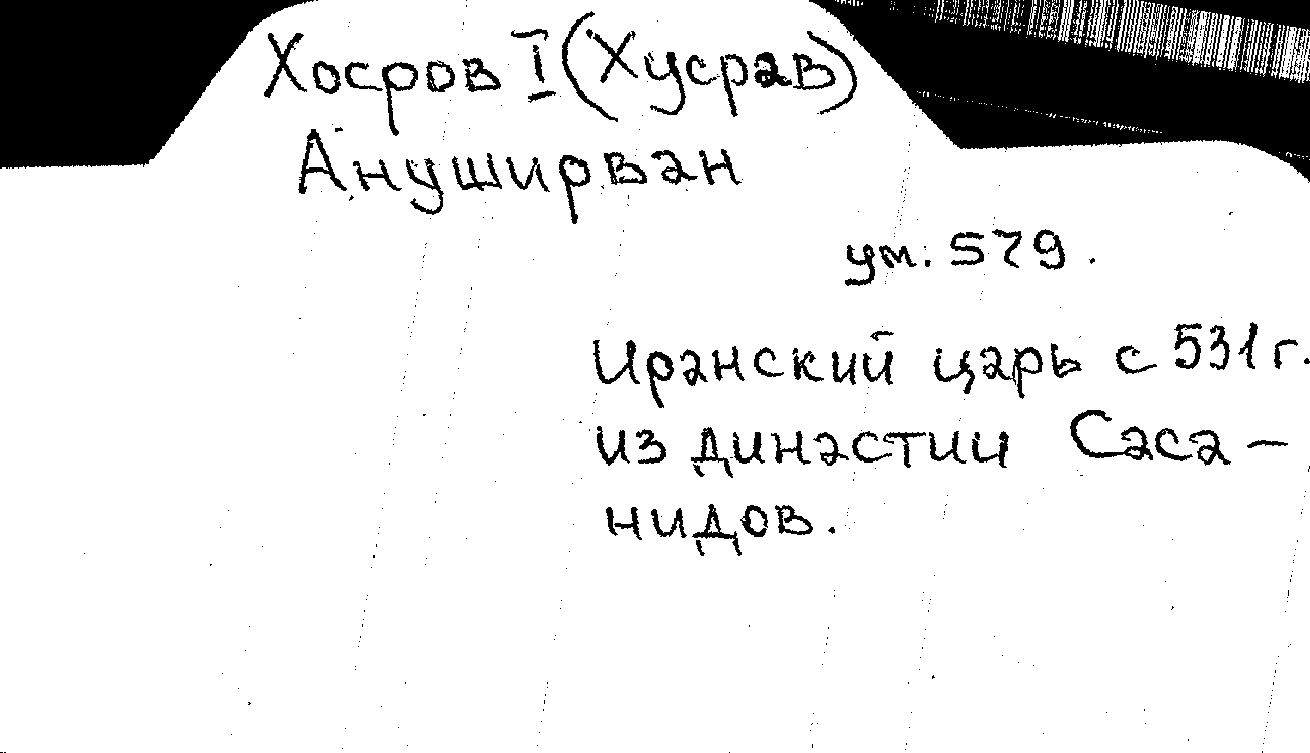 Хосров I (Хусрав)
Ануширван
ум. 579.
Иранский царь с 531 г.
из династии Саса-
нидов.